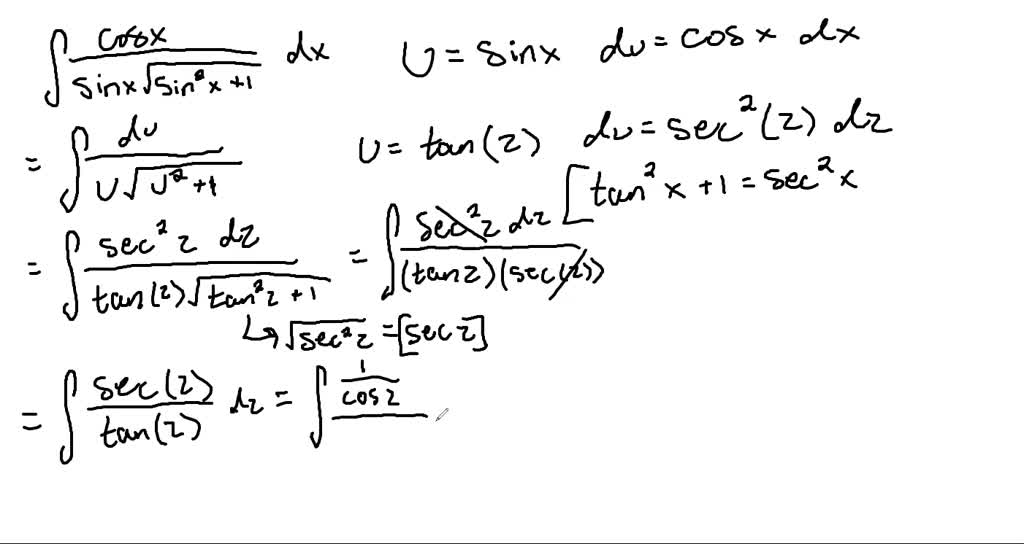 ∫ cosx / (sinx√(sin²x +1)) dx   U = sinx   du = cosx dx
= ∫ du / (U√(U² +1))   U = tan(z)   du = sec²(z) dz
[tan²x +1 = sec²x
= ∫ sec²z dz / (tan(z)√(tan²z +1)) = ∫ sec²z dz / ((tanz)(sec(z)))
↳ √(sec²z) = [secz]
= ∫ sec(z) / tan(z) dz = ∫ (1/cosz) /